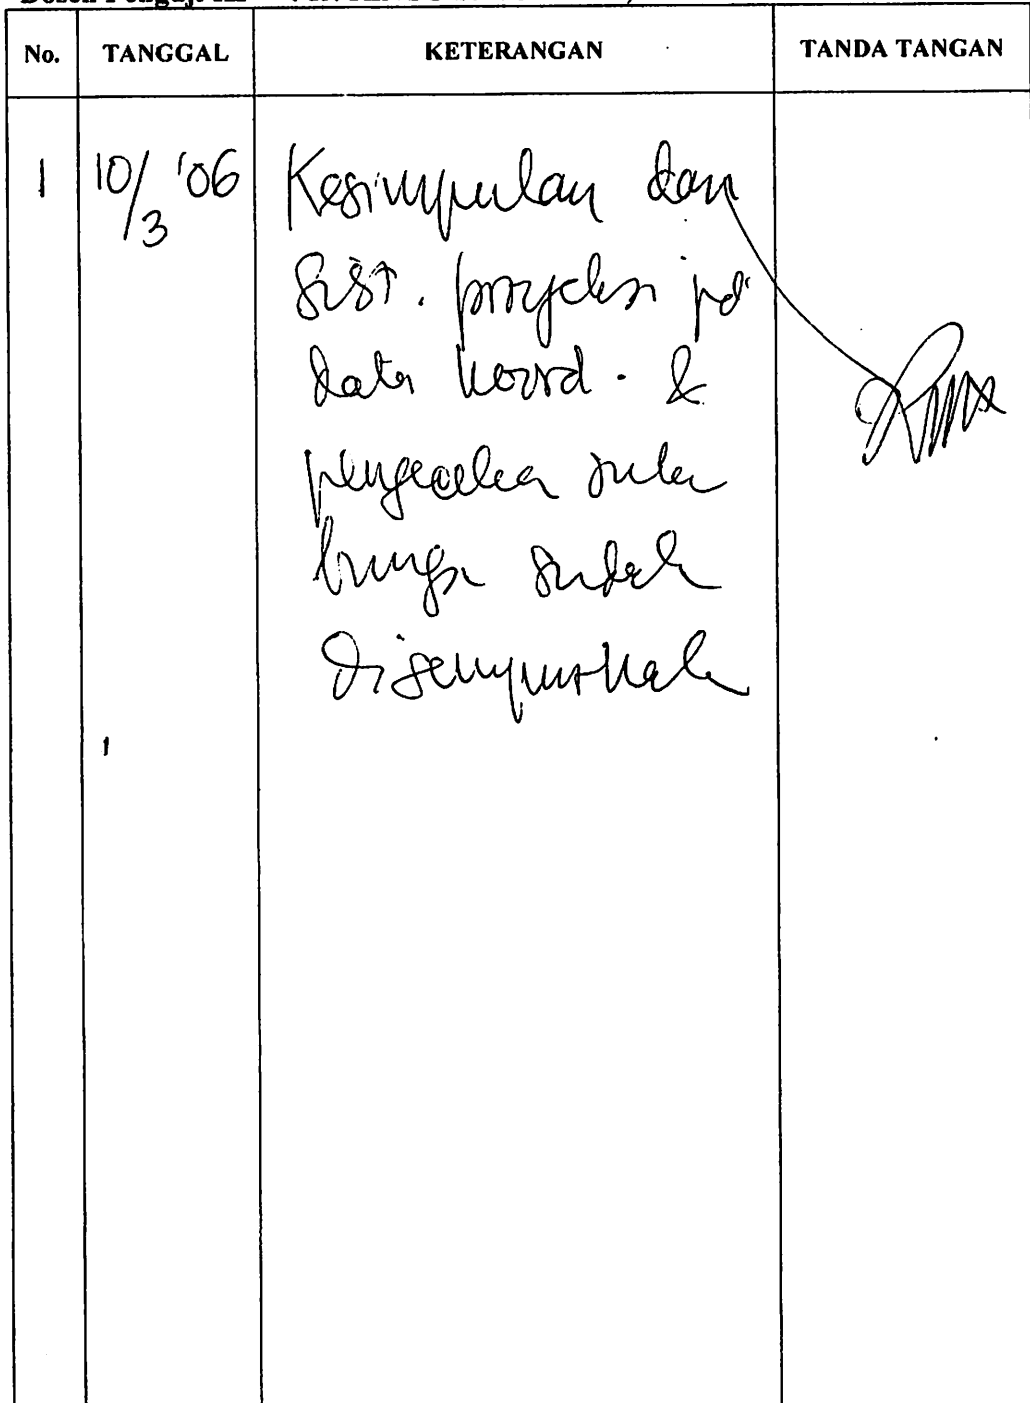 No. TANGGAL KETERANGAN TANDA TANGAN
1 10/3 '06 Kesimpulan dan
Sist. proyeksi pd
data koord. &
pengecekan suku
bunga sudah
disempurnakan